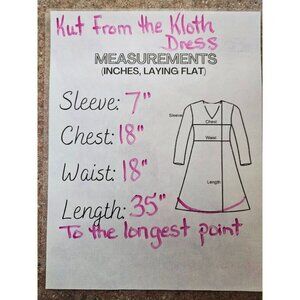 Kut From the Kloth
Dress
MEASUREMENTS
(INCHES, LAYING FLAT)
Sleeve: 7"
Chest: 18"
Waist: 18"
Length: 35"
To the longest point
Sleeve
Chest
Waist
Length